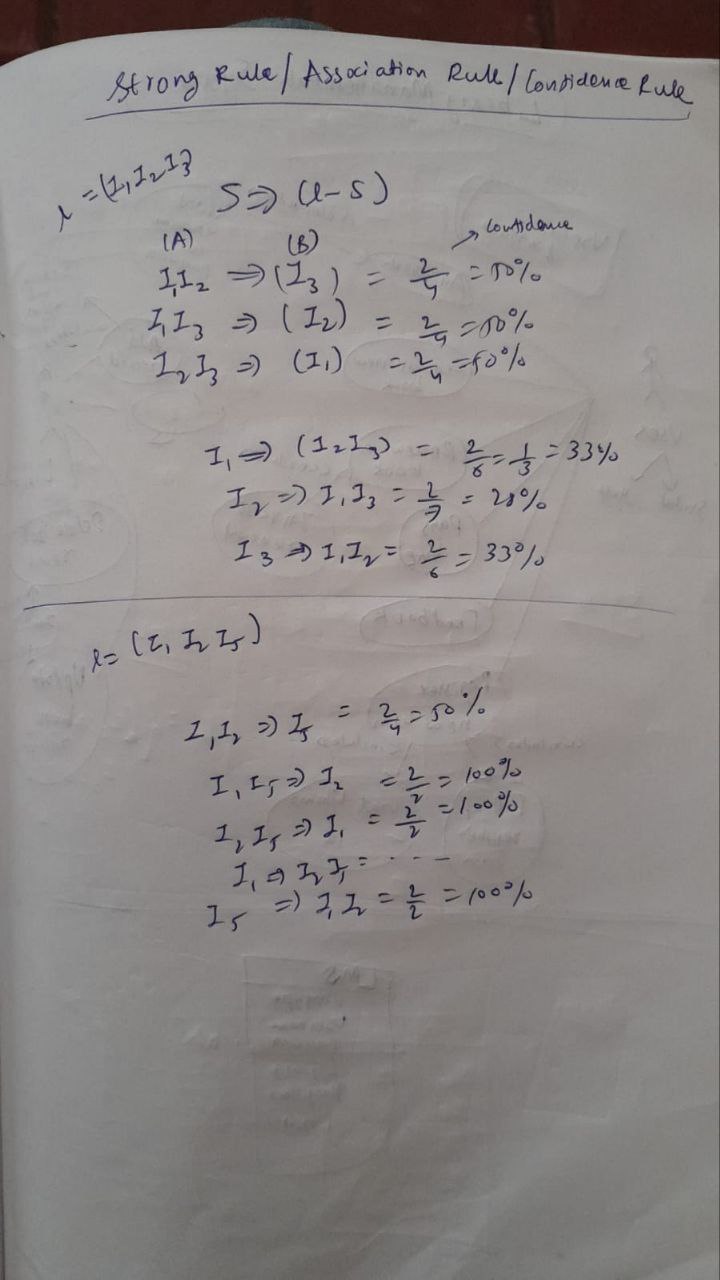 Strong Rule / Association Rule / Confidence Rule
l = {I₁ I₂ I₃}
S ⇒ (l-S)
(A) (B) → Confidence
I₁I₂ ⇒ (I₃) = 2/4 = 50%
I₁I₃ ⇒ (I₂) = 2/4 = 50%
I₂I₃ ⇒ (I₁) = 2/4 = 50%
I₁ ⇒ (I₂I₃) = 2/6 = 1/3 = 33%
I₂ ⇒ I₁I₃ = 2/7 = 28%
I₃ ⇒ I₁I₂ = 2/6 = 33%
l = (I₁ I₂ I₅)
I₁I₂ ⇒ I₅ = 2/4 = 50%
I₁I₅ ⇒ I₂ = 2/2 = 100%
I₂I₅ ⇒ I₁ = 2/2 = 100%
I₁ ⇒ I₂I₅ = - - - -
I₅ ⇒ I₁I₂ = 2/2 = 100%